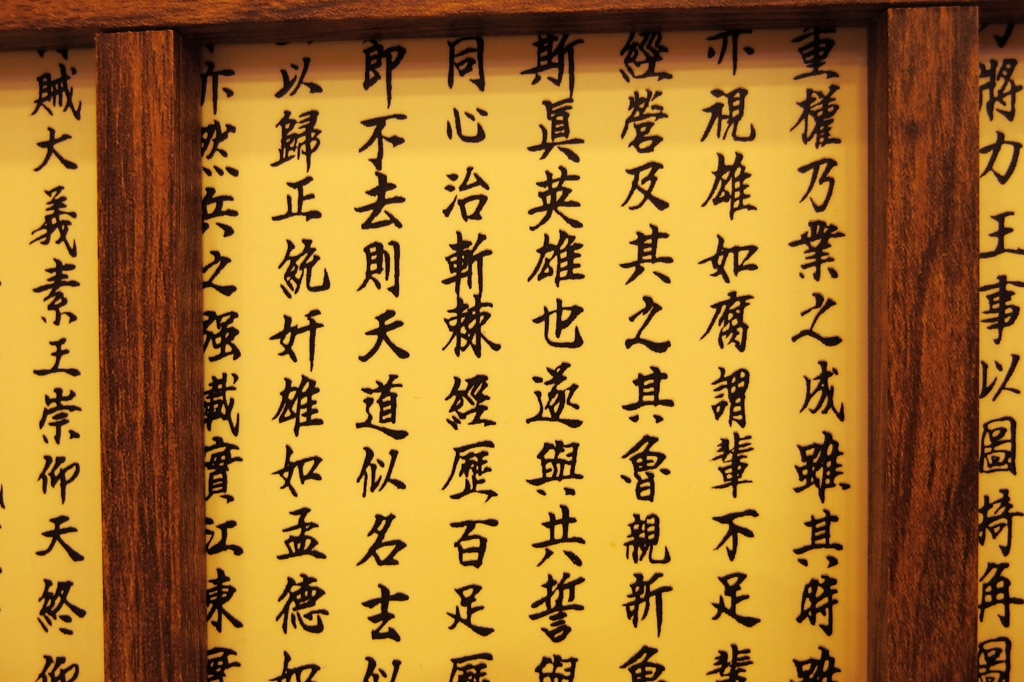 將力王事以圖掎角圖
重權乃業之成雖其時雖
亦視雄如腐謂輩不足輩
經營及其之其魯親新魯
斯真英雄也遂與共誓與
同心治斬棘經歷百足歷
即不去則天道似名去似
以歸正統奸雄如孟德如
亦然兵之强載實江東實
賊大義素王崇仰天終仰